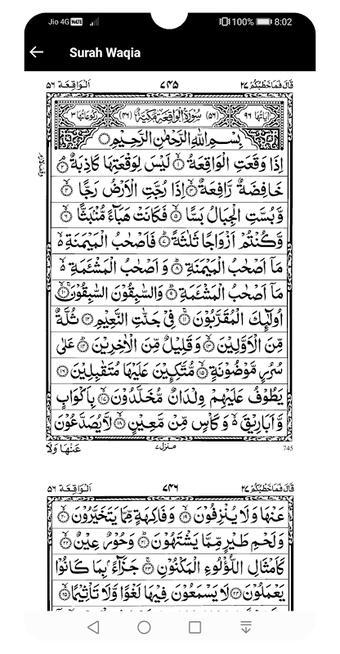 Jio 4G 100% 8:02
Surah Waqia
الواقعة ٥٦ ٧٤٥ قال فما خطبكم ٢٧
اٰیاتها ٩٦ (٥٦) سُوْرَةُ الْوَاقِعَةِ مَكِّيَّةٌ (٤٦) رکوعاتها ٣
بِسْمِ اللهِ الرَّحْمٰنِ الرَّحِيْمِ
اِذَا وَقَعَتِ الْوَاقِعَةُ ۝١ لَيْسَ لِوَقْعَتِهَا كَاذِبَةٌ ۝٢
خَافِضَةٌ رَّافِعَةٌ ۝٣ اِذَا رُجَّتِ الْاَرْضُ رَجًّا ۝٤
وَّ بُسَّتِ الْجِبَالُ بَسًّا ۝٥ فَكَانَتْ هَبَآءً مُّنْۢبَثًّا ۝٦
وَّ كُنْتُمْ اَزْوَاجًا ثَلٰثَةً ۝٧ فَاَصْحٰبُ الْمَيْمَنَةِ
مَاۤ اَصْحٰبُ الْمَيْمَنَةِ ۝٨ وَ اَصْحٰبُ الْمَشْـَٔمَةِ
مَاۤ اَصْحٰبُ الْمَشْـَٔمَةِ ۝٩ وَالسّٰبِقُوْنَ السّٰبِقُوْنَ ۝١٠
اُولٰٓئِكَ الْمُقَرَّبُوْنَ ۝١١ فِيْ جَنّٰتِ النَّعِيْمِ ۝١٢ ثُلَّةٌ
مِّنَ الْاَوَّلِيْنَ ۝١٣ وَ قَلِيْلٌ مِّنَ الْاٰخِرِيْنَ ۝١٤ عَلٰى
سُرُرٍ مَّوْضُوْنَةٍ ۝١٥ مُّتَّكِـِٕيْنَ عَلَيْهَا مُتَقٰبِلِيْنَ ۝١٦
يَطُوْفُ عَلَيْهِمْ وِلْدَانٌ مُّخَلَّدُوْنَ ۝١٧ بِاَكْوَابٍ
وَّ اَبَارِيْقَ ۙ وَ كَاْسٍ مِّنْ مَّعِيْنٍ ۝١٨ لَّا يُصَدَّعُوْنَ
عَنْهَا وَلَا منزل ٧ 745
الواقعة ٥٦ ٧٤٦ قال فما خطبكم ٢٧
عَنْهَا وَلَا يُنْزِفُوْنَ ۝١٩ وَفَاكِهَةٍ مِّمَّا يَتَخَيَّرُوْنَ ۝٢٠
وَلَحْمِ طَيْرٍ مِّمَّا يَشْتَهُوْنَ ۝٢١ وَحُوْرٌ عِيْنٌ ۝٢٢
كَاَمْثَالِ اللُّؤْلُؤِ الْمَكْنُوْنِ ۝٢٣ جَزَآءًۢ بِمَا كَانُوْا
يَعْمَلُوْنَ ۝٢٤ لَا يَسْمَعُوْنَ فِيْهَا لَغْوًا وَّلَا تَاْثِيْمًا ۝٢٥